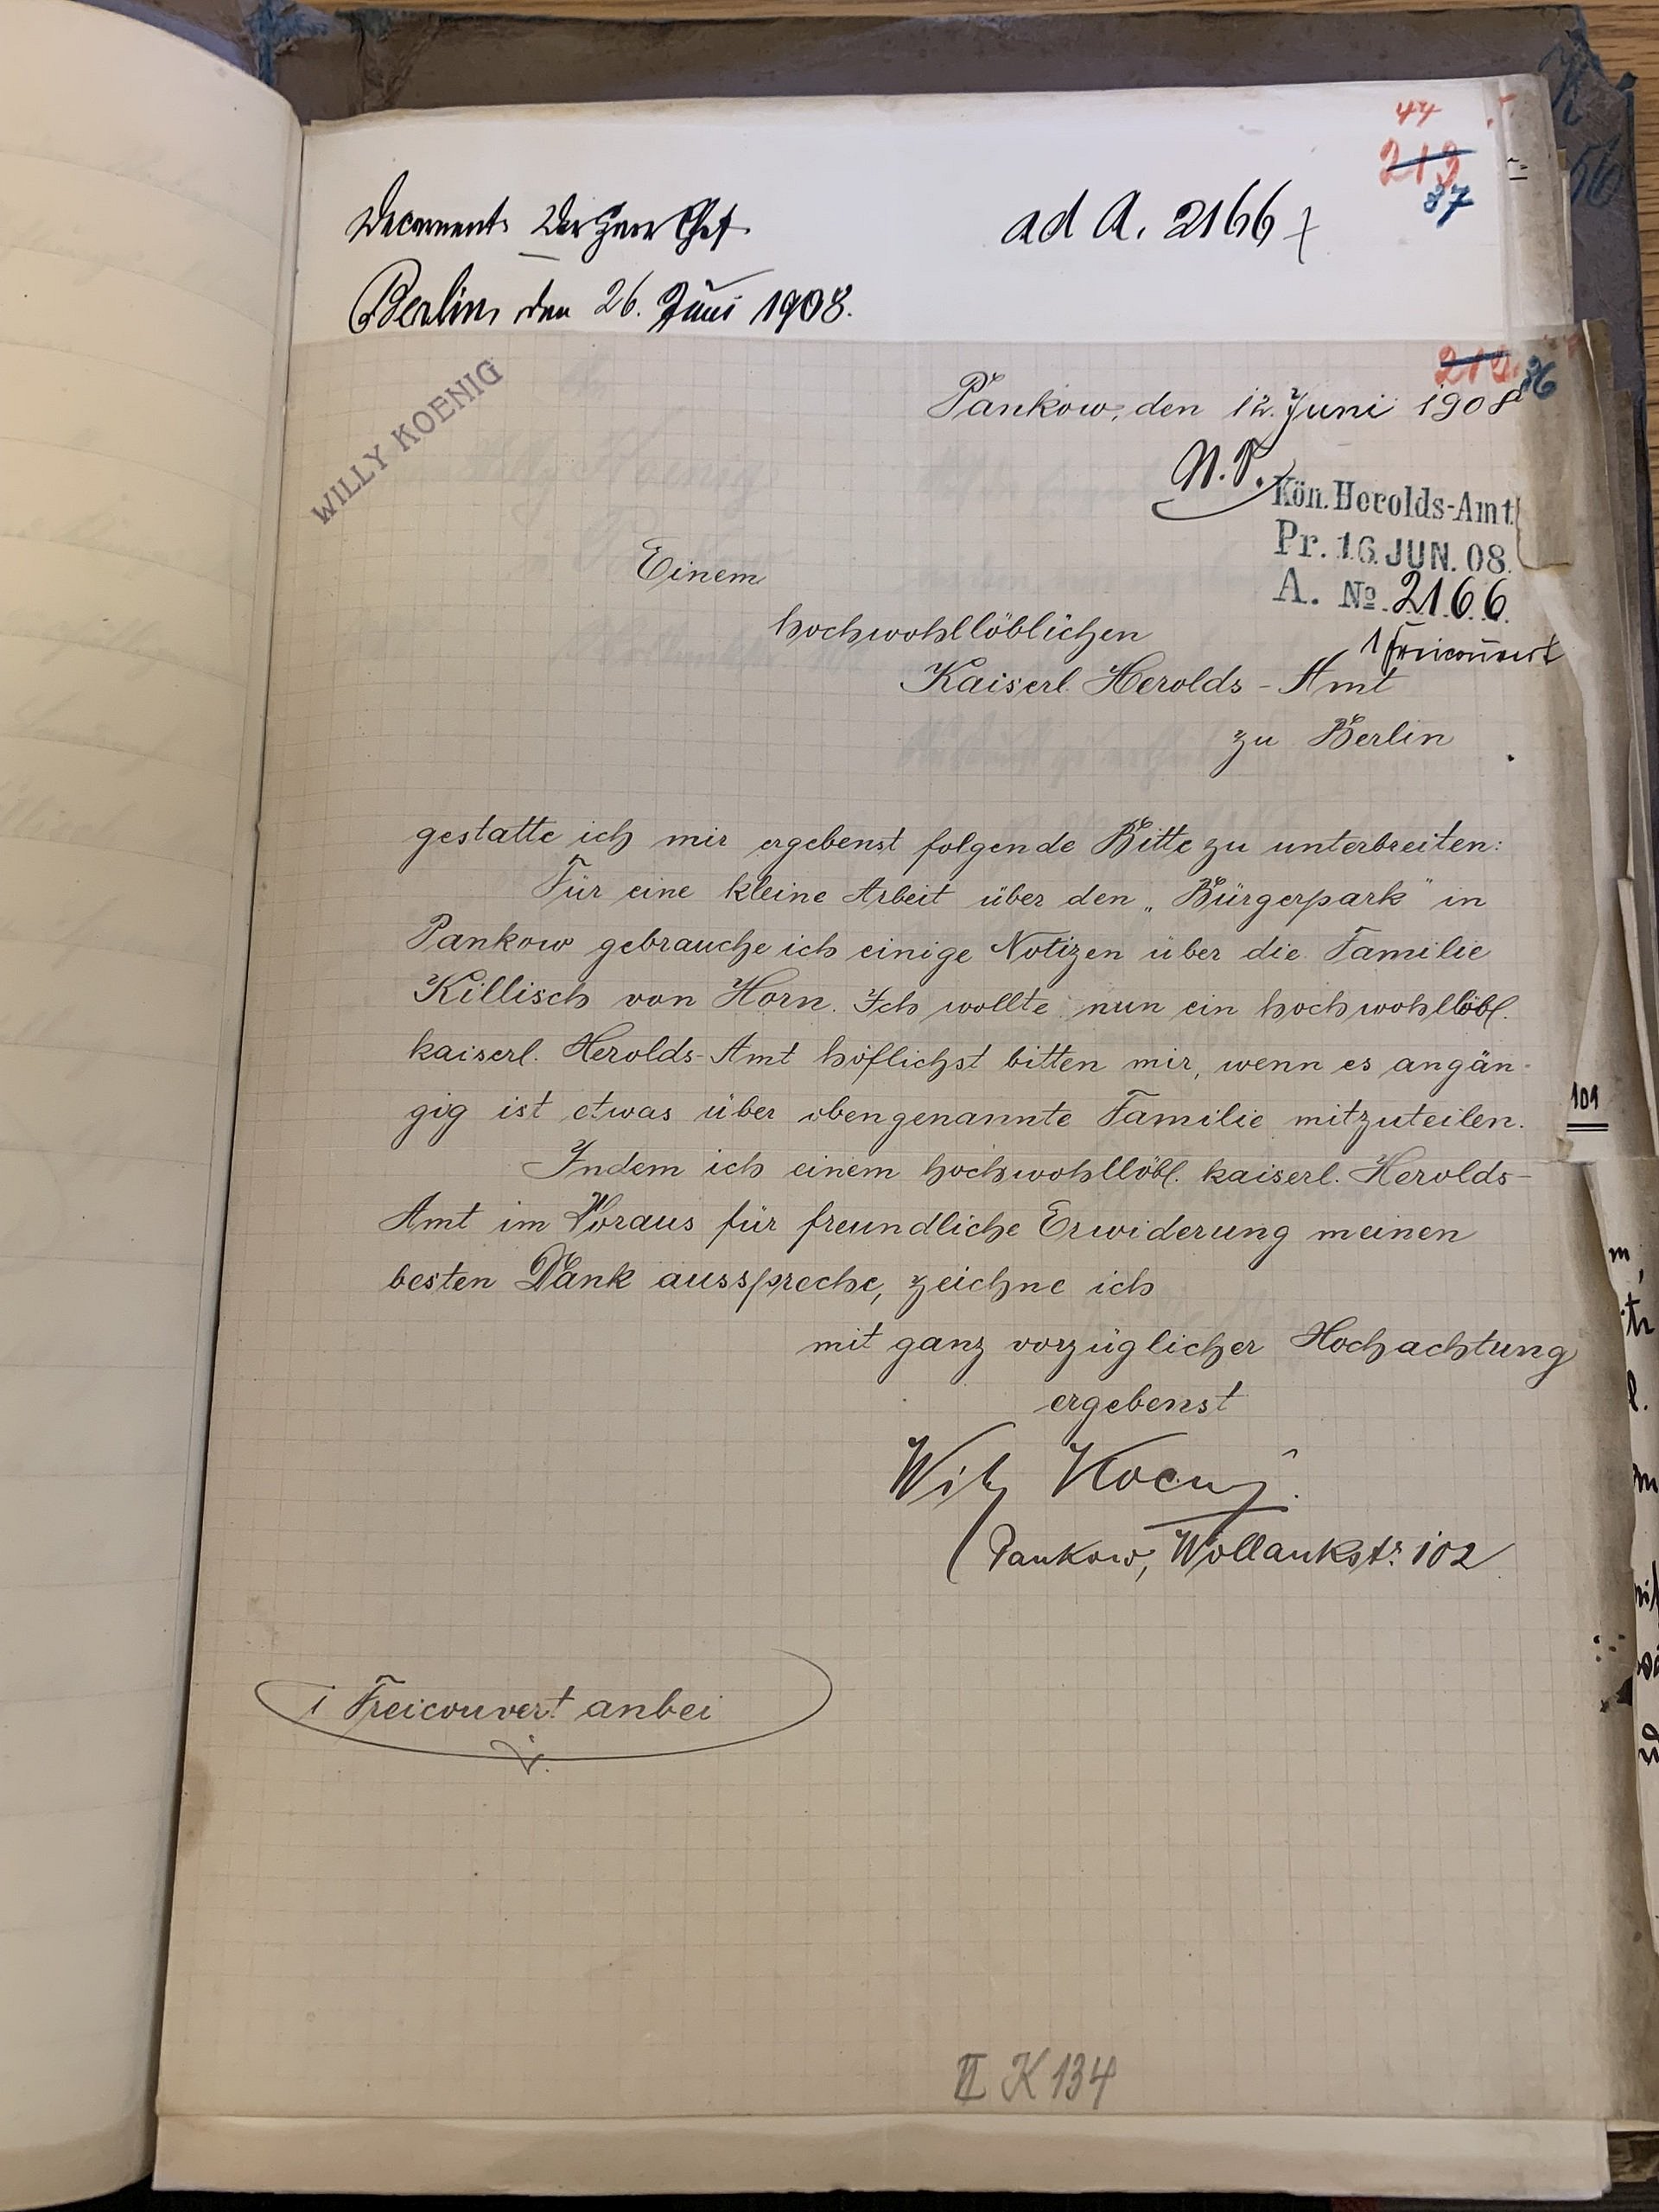 44
213
87
Decernent: Der Herr Chef.
ad A. 2166
Berlin, den 26. Juni 1908.
212. 86
WILLY KOENIG
Pankow, den 12. Juni 1908
N. T.
Kön. Herolds-Amt
Pr. 16. JUN. 08.
A. No. 2166.
1 Freicouvert
Einem
hochwohllöblichen
Kaiserl. Herolds-Amt
zu Berlin
gestatte ich mir ergebenst folgende Bitte zu unterbreiten:
Für eine kleine Arbeit über den „Bürgerpark" in
Pankow gebrauche ich einige Notizen über die Familie
Killisch von Horn. Ich wollte nun ein hochwohllöbl.
kaiserl. Herolds-Amt höflichst bitten mir, wenn es angän-
gig ist etwas über obengenannte Familie mitzuteilen.
Indem ich einem hochwohllöbl. kaiserl. Herolds-
Amt im Voraus für freundliche Erwiderung meinen
besten Dank ausspreche, zeichne ich
mit ganz vorzüglicher Hochachtung
ergebenst
Willy Koenig.
Pankow, Wollankstr. 102
1 Freicouvert anbei
II K 134
101